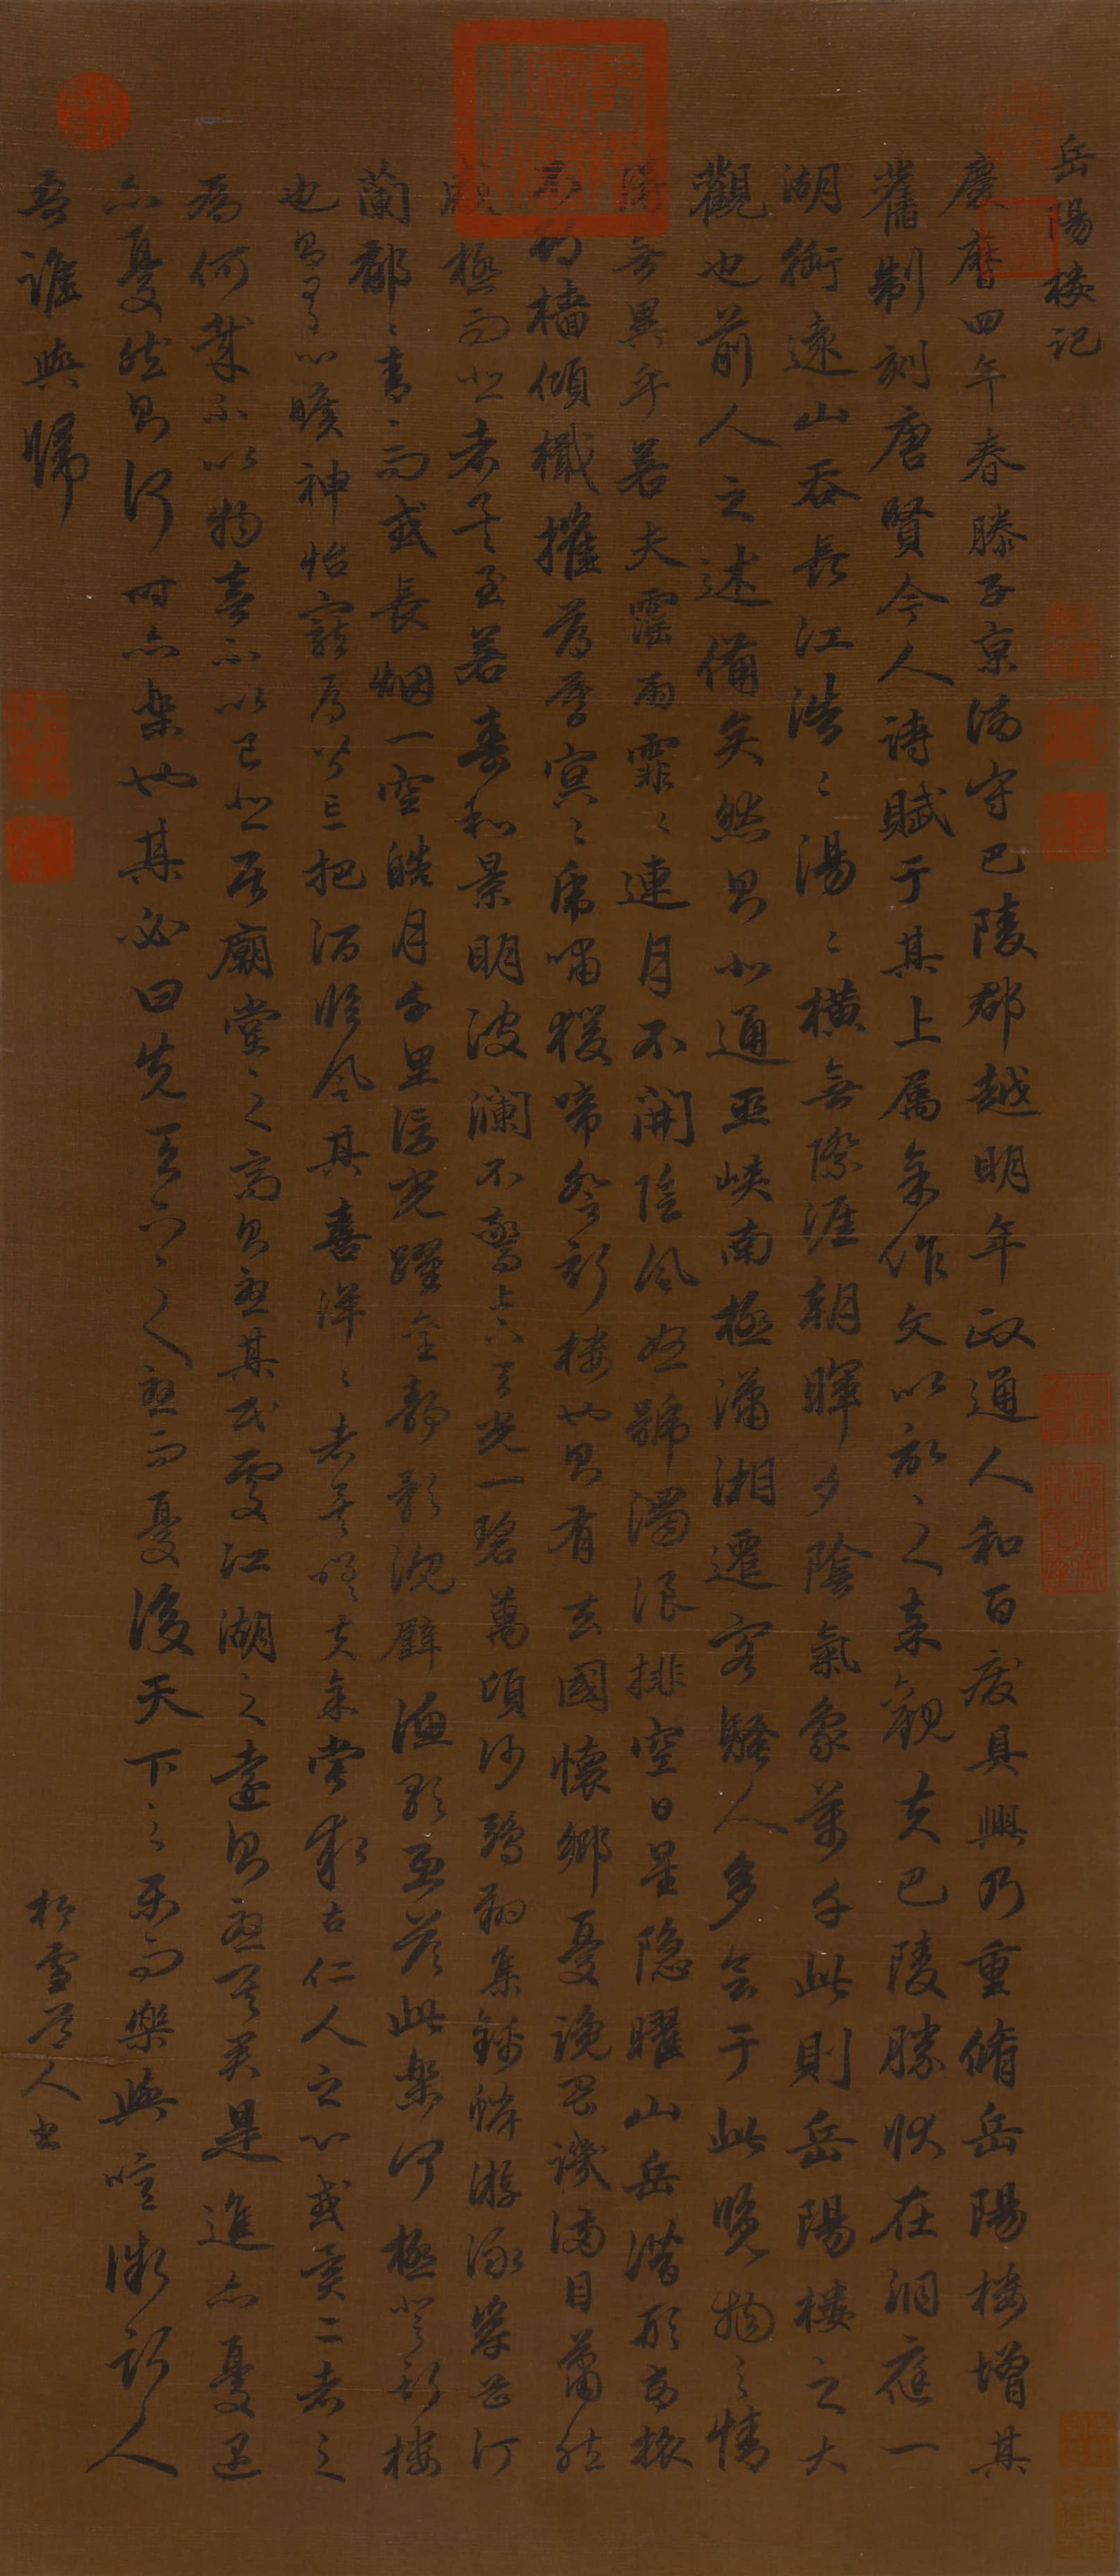 岳陽樓記
慶曆四年春滕子京謫守巴陵郡越明年政通人和百廢具興乃重脩岳陽樓增其
舊制刻唐賢今人詩賦于其上属余作文以記之余觀夫巴陵勝狀在洞庭一
湖銜遠山吞長江浩〻湯〻橫無際涯朝暉夕陰氣象萬千此則岳陽樓之大
觀也前人之述備矣然則北通巫峽南極瀟湘遷客騷人多會于此覽物之情
得無異乎若夫霪雨霏〻連月不開陰風怒號濁浪排空日星隱曜山岳潛形商旅
不行檣傾檝摧薄暮冥〻虎嘯猨啼登斯樓也則有去國懷鄉憂讒畏譏滿目蕭然
感極而悲者矣至若春和景明波瀾不驚上下天光一碧萬頃沙鷗翔集錦鱗游泳岸芷汀
蘭郁〻青〻而或長烟一空皓月千里浮光躍金靜影沈璧漁歌互答此樂何極登斯樓
也則有心曠神怡寵辱皆忘把酒臨風其喜洋〻者矣嗟夫余嘗求古仁人之心或異二者之
為何哉不以物喜不以己悲居廟堂之高則憂其民處江湖之遠則憂其君是進亦憂退
亦憂然則何時而樂也其必曰先天下之憂而憂後天下之樂而樂與噫微斯人
吾誰與歸
松雪道人書